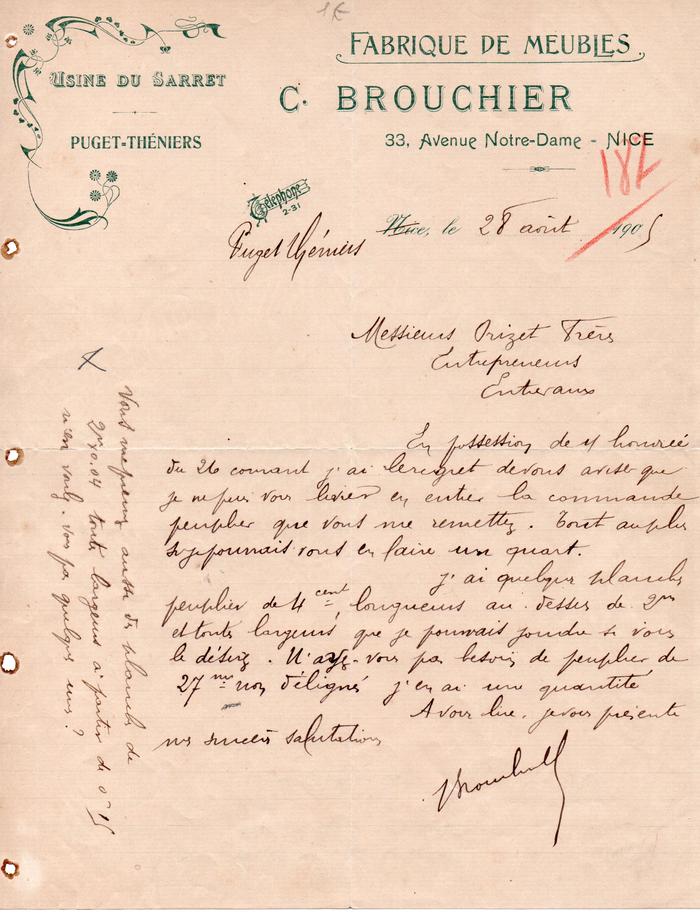 1€
FABRIQUE DE MEUBLES
USINE DU SARRET
C. BROUCHIER
PUGET-THÉNIERS
33, Avenue Notre-Dame - NICE
182
Téléphone
2-31
Nice, le 28 août 1905
Puget Théniers
Messieurs Frères
Entrepreneurs
Entrevaux
En possession de honorée
du 26 courant j'ai le regret de vous aviser que
je ne puis vous livrer en entier la commande
peuplier que vous me remettez. Tout au plus
si je pourrais vous en faire un quart.
J'ai quelques planches
peuplier de 4 cent longueurs au dessus de 2m
et toute largeurs que je pourrais joindre si vous
le désirez. N'avez-vous pas besoin de peuplier de
27 mm non déligné j'en ai une quantité
A vous lire, je vous présente
mes sincères salutations
Brouchier
X
Vous aussi des planches de
toute largeurs à partir de 0m15
n'en voulez-vous pas quelques unes?